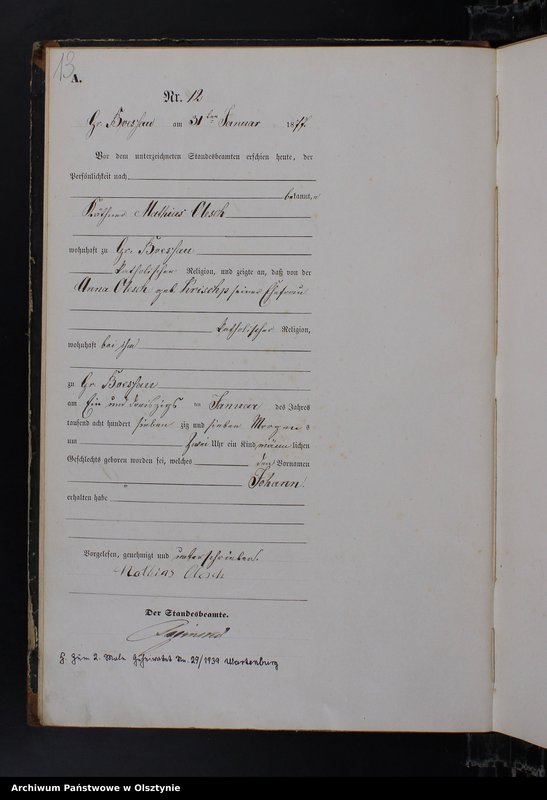 13
A.
Nr. 12
Gr. Boessau am 31ten Januar 1877.
Vor dem unterzeichneten Standesbeamten erschien heute, der
Persönlichkeit nach
bekannt,
Käthner Mathias Olesch
wohnhaft zu Gr. Boessau
katholischer Religion, und zeigte an, daß von der
Anna Olesch geb. seiner Ehefrau
katholischer Religion,
wohnhaft bei ihm
zu Gr. Boessau
am Ein und dreißigs ten Januar des Jahres
tausend acht hundert sieben zig und sieben Morgens
um Zwei Uhr ein Kind männ lichen
Geschlechts geboren worden sei, welches den Vornamen
Johann
erhalten habe
Vorgelesen, genehmigt und unterschrieben.
Mathias Olesch
Der Standesbeamte.
z. zum 2. Male geheiratet Nr. 29/1939 Wartenburg
Archiwum Państwowe w Olsztynie